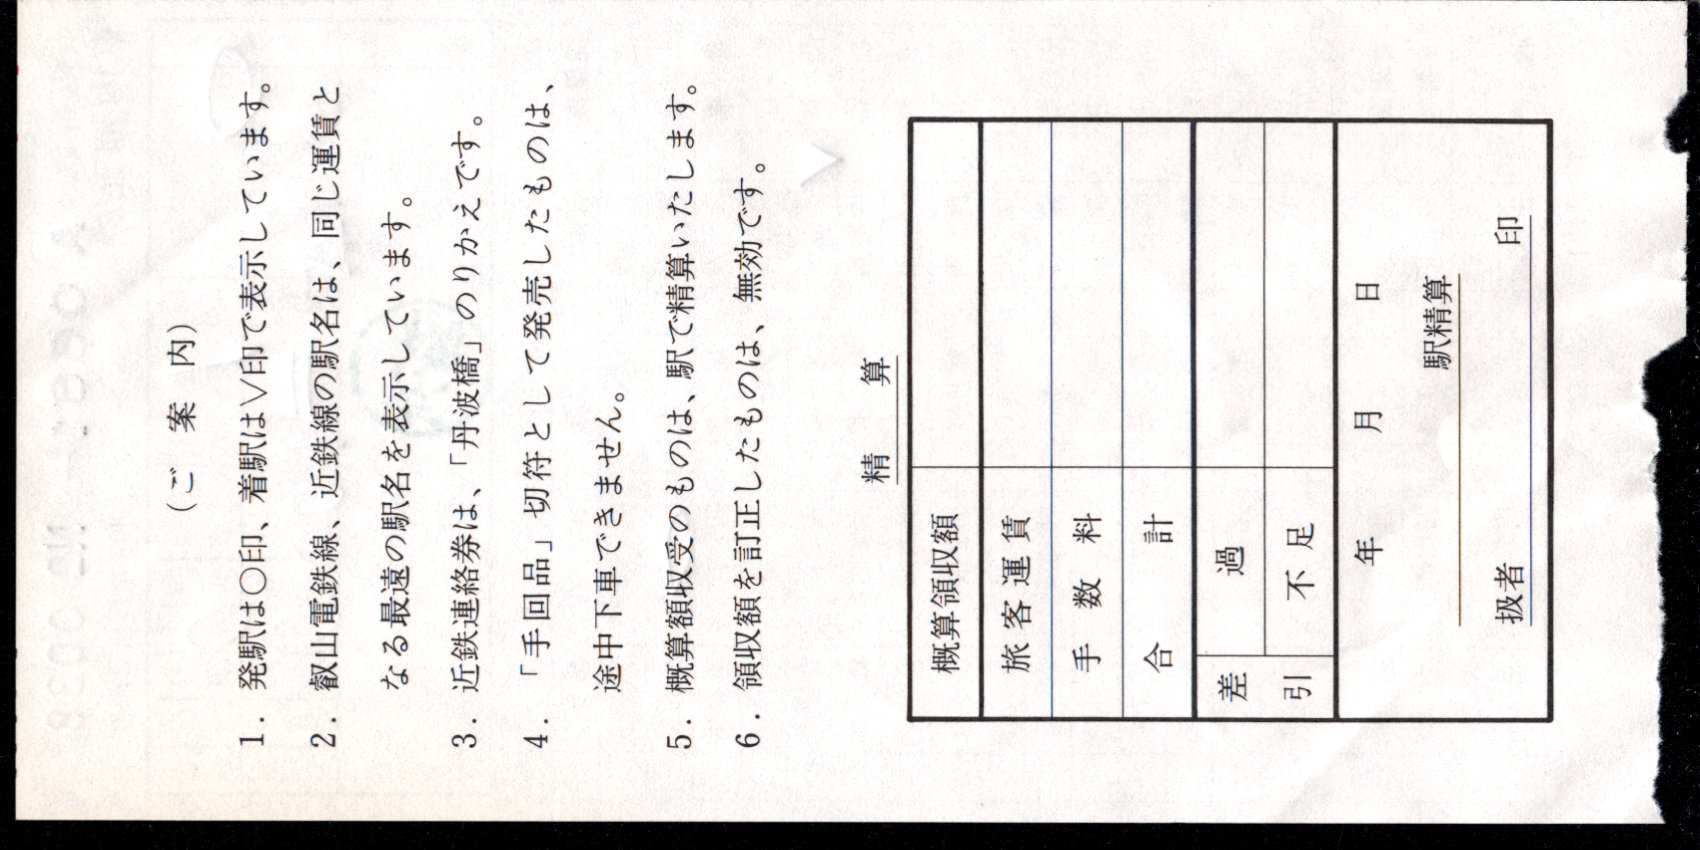 (ご 案 内)
1. 発駅は○印、着駅は∨印で表示しています。
2. 叡山電鉄線、近鉄線の駅名は、同じ運賃と
なる最遠の駅名を表示しています。
3. 近鉄連絡券は、「丹波橋」のりかえです。
4. 「手回品」切符として発売したものは、
途中下車できません。
5. 概算額収受のものは、駅で精算いたします。
6. 領収額を訂正したものは、無効です。
精 算
概算領収額
旅客運賃
手数料
合計
差引
過
不足
年 月 日
駅精算
扱者 印